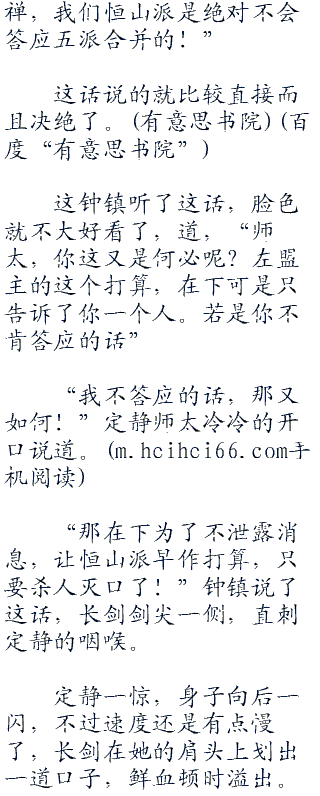 禅，我们恒山派是绝对不会
答应五派合并的！”
这话说的就比较直接而
且决绝了。(有意思书院)(百
度“有意思书院”)
这钟镇听了这话，脸色
就不大好看了，道，“师
太，你这又是何必呢？左盟
主的这个打算，在下可是只
告诉了你一个人。若是你不
肯答应的话”
“我不答应的话，那又
如何！”定静师太冷冷的开
口说道。(m.hcihci66.com手
机阅读)
“那在下为了不泄露消
息，让恒山派早作打算，只
要杀人灭口了！”钟镇说了
这话，长剑剑尖一侧，直刺
定静的咽喉。
定静一惊，身子向后一
闪，不过速度还是有点慢
了，长剑在她的肩头上划出
一道口子，鲜血顿时溢出。